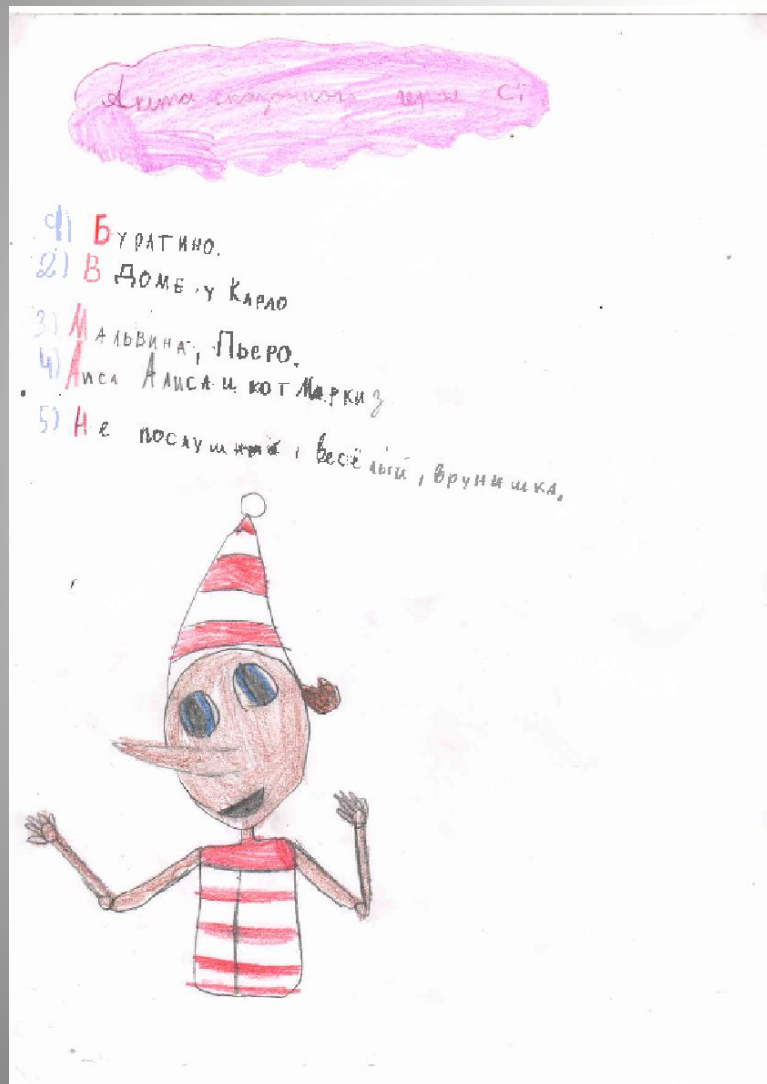 Анета сказочного героя
1) БУРАТИНО.
2) В ДОМЕ У КАРЛО
3) МАЛЬВИНА, ПЬЕРО.
4) Лиса АЛИСА и кот Маркиз
5) Не послушный, весёлый, врунишка.